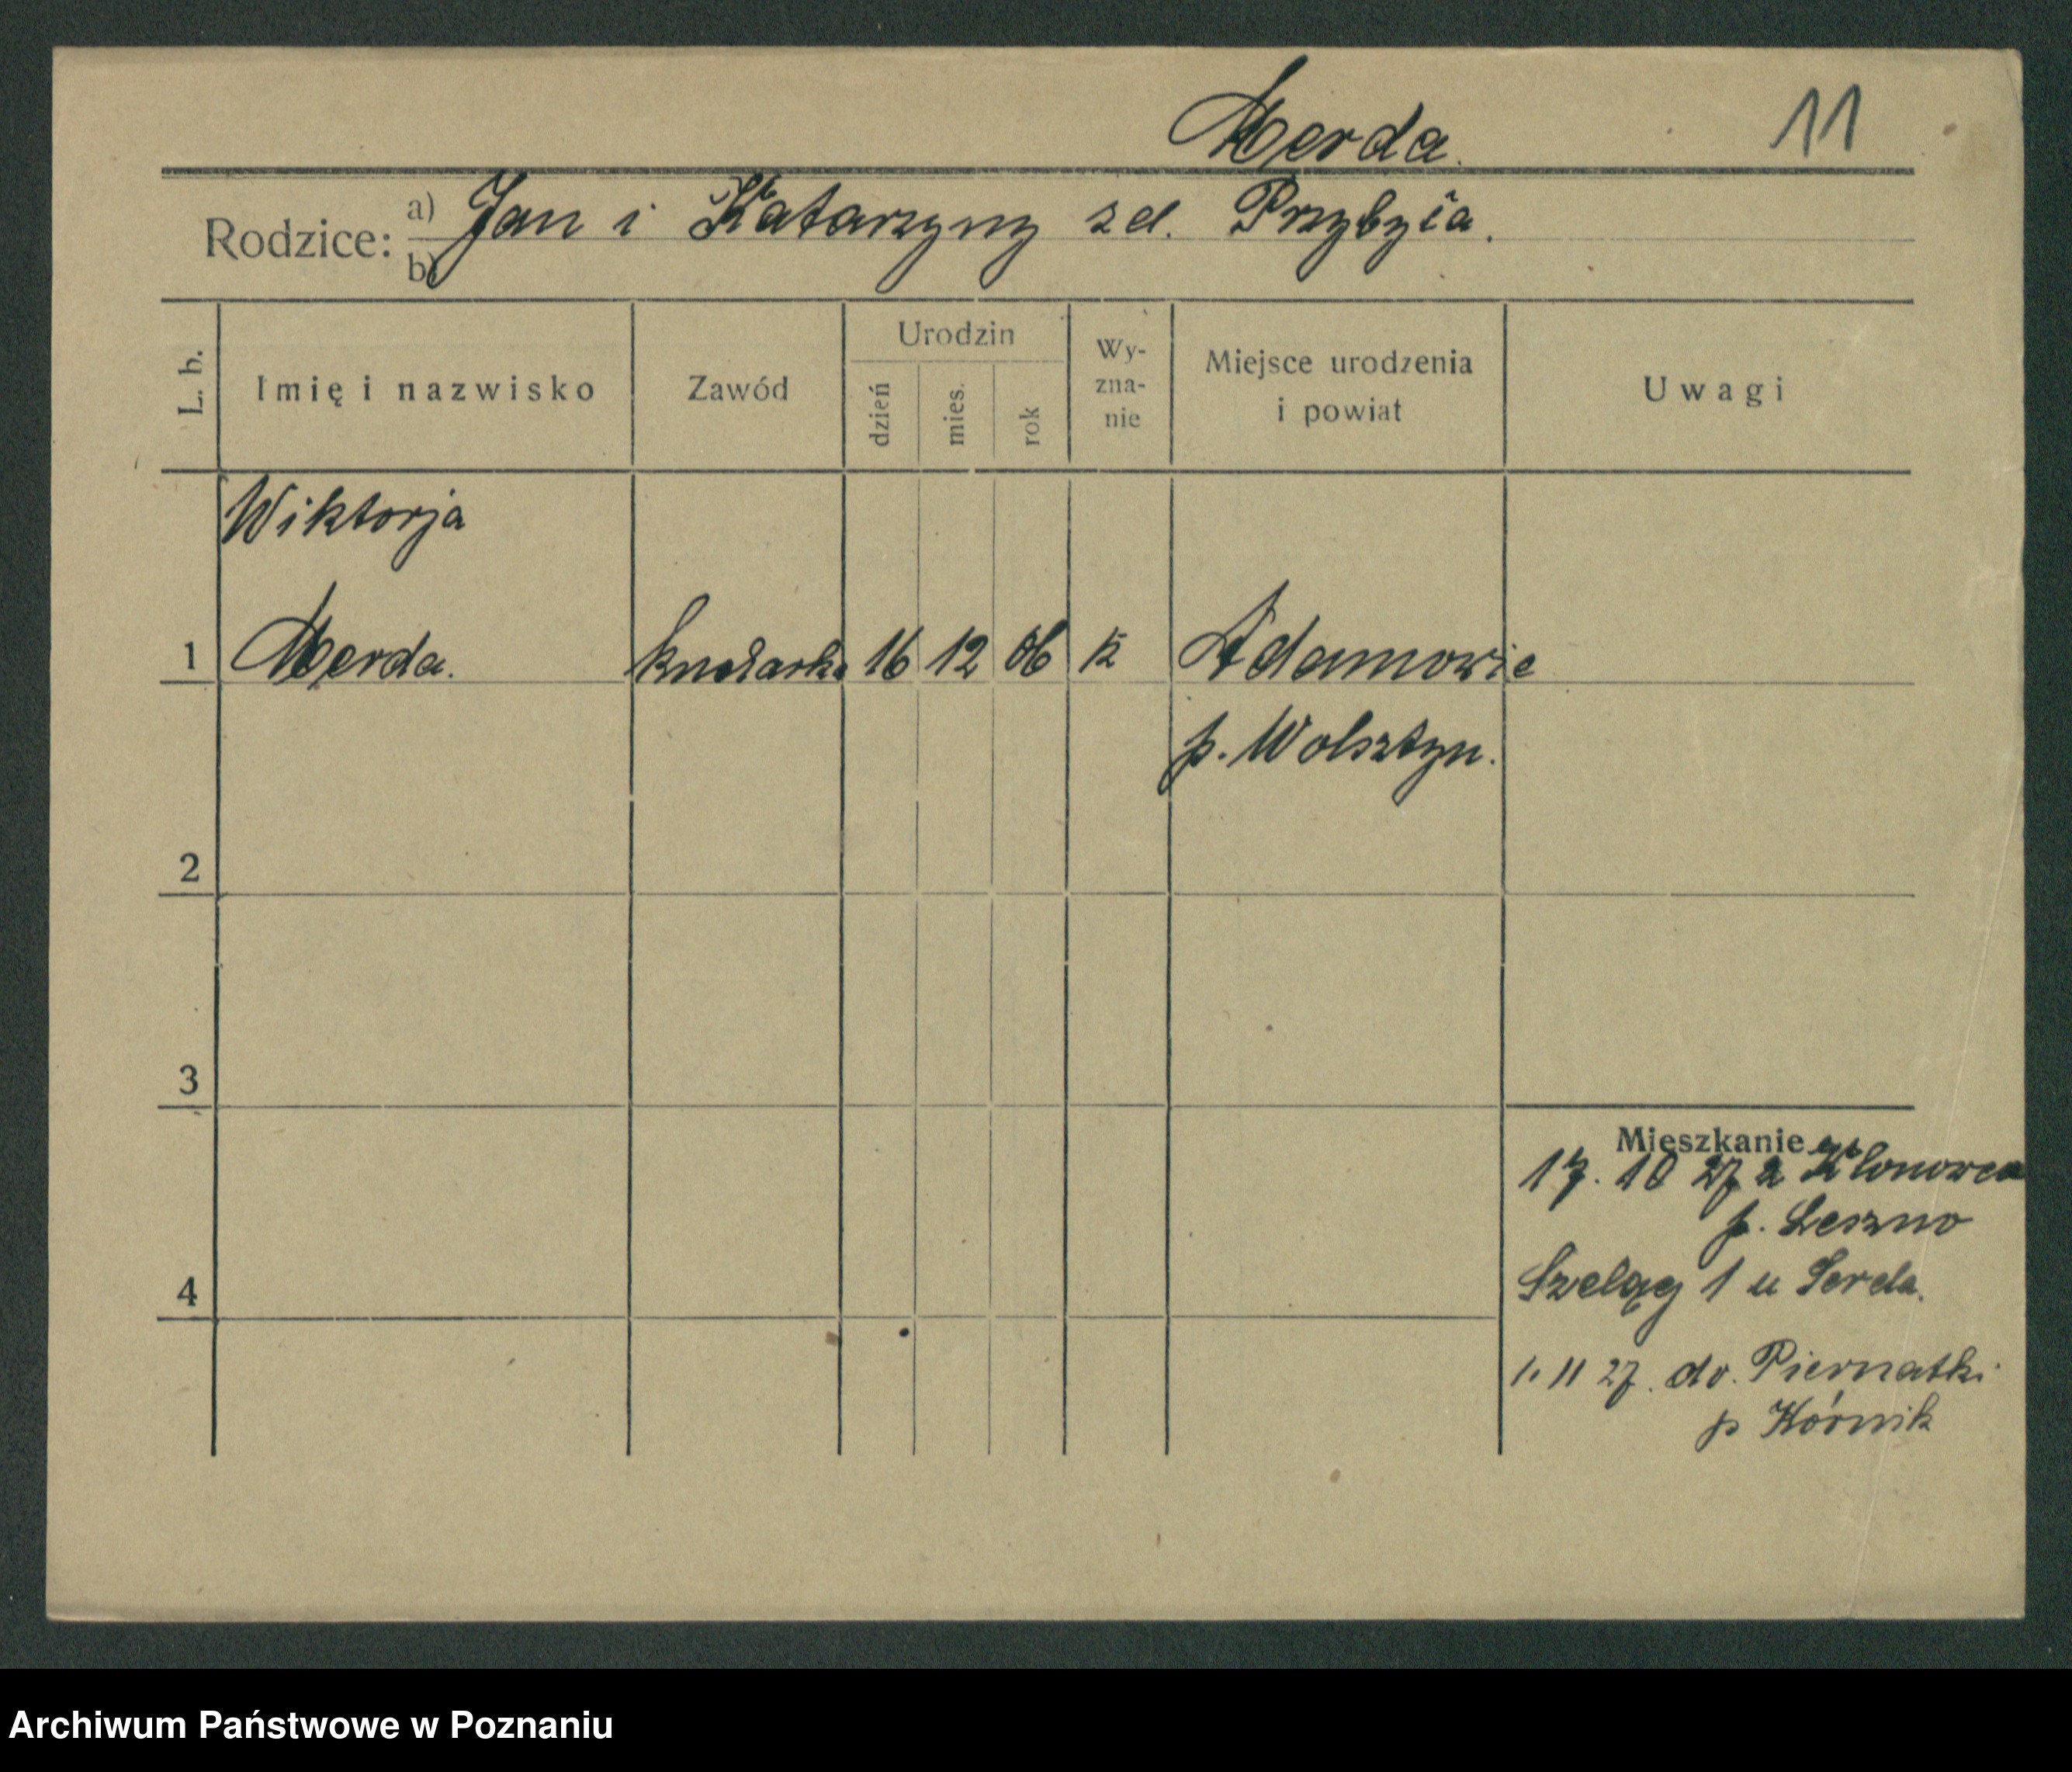 Merda.
11
Rodzice: a) Jan i Katarzyny zd. Przybyła.
b)
L. b. Imię i nazwisko Zawód Urodzin dzień mies. rok Wy-zna-nie Miejsce urodzenia i powiat Uwagi
Wiktorja
1 Merda. kucharka 16 12 06 k Adamowie
p. Wolsztyn.
2
3
Mieszkanie
17. 10 27 z Klonowca
p. Leszno
4 Szeląg 1 u Serda.
1. 11 27. do. Piernatki
p Kórnik
Archiwum Państwowe w Poznaniu